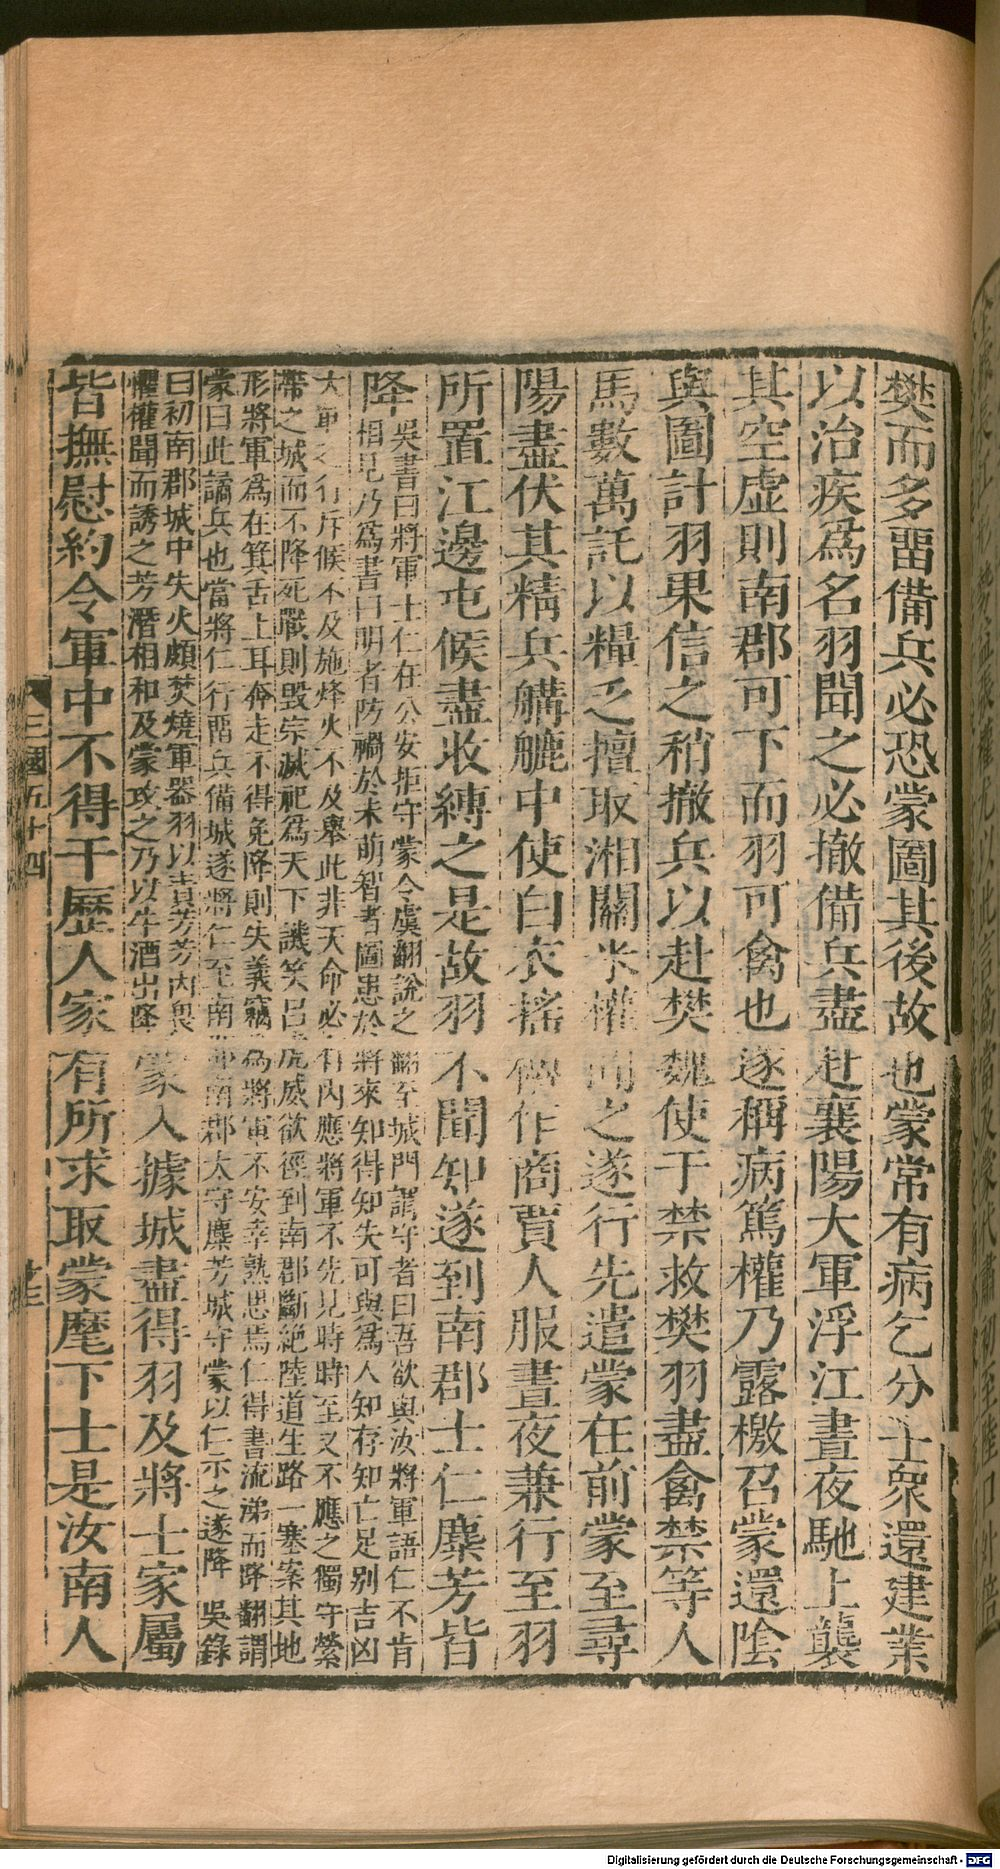 樊而多畱備兵必恐蒙圖其後故也蒙常有病乞分士衆還建業
以治疾爲名羽聞之必撤備兵盡赴襄陽大軍浮江晝夜馳上襲
其空虛則南郡可下而羽可禽也遂稱病篤權乃露檄召蒙還陰
與圖計羽果信之稍撤兵以赴樊魏使于禁救樊羽盡禽禁等人
馬數萬託以糧乏擅取湘關米權聞之遂行先遣蒙在前蒙至尋
陽盡伏其精兵䑨䑠中使白衣搖櫓作商賈人服晝夜兼行至羽
所置江邊屯候盡收縛之是故羽不聞知遂到南郡士仁麋芳皆
降吳書曰將軍士仁在公安拒守蒙令虞翻說之翻至城門謂守者曰吾欲與汝將軍語仁不肯
相見乃爲書曰明者防禍於未萌智者圖患於將來知得知失可與爲人知存知亡足別吉凶
大軍之行斥候不及施烽火不及舉此非天命必有內應將軍不先見時時至又不應之獨守縈
帶之城而不降死戰則毀宗滅祀爲天下譏笑呂虎威欲徑到南郡斷絕陸道生路一塞案其地
形將軍爲在箕舌上耳奔走不得免降則失義竊爲將軍不安幸熟思焉仁得書流涕而降翻謂
蒙曰此譎兵也當將仁行畱兵備城遂將仁至南郡南郡太守麋芳城守蒙以仁示之遂降 吳錄
曰初南郡城中失火頗焚燒軍器羽以責芳芳內畏
懼權聞而誘之芳潛相和及蒙攻之乃以牛酒出降
蒙入據城盡得羽及將士家屬
皆撫慰約令軍中不得干歷人家有所求取蒙麾下士是汝南人
三國五十四
Digitalisierung gefördert durch die Deutsche Forschungsgemeinschaft - DFG